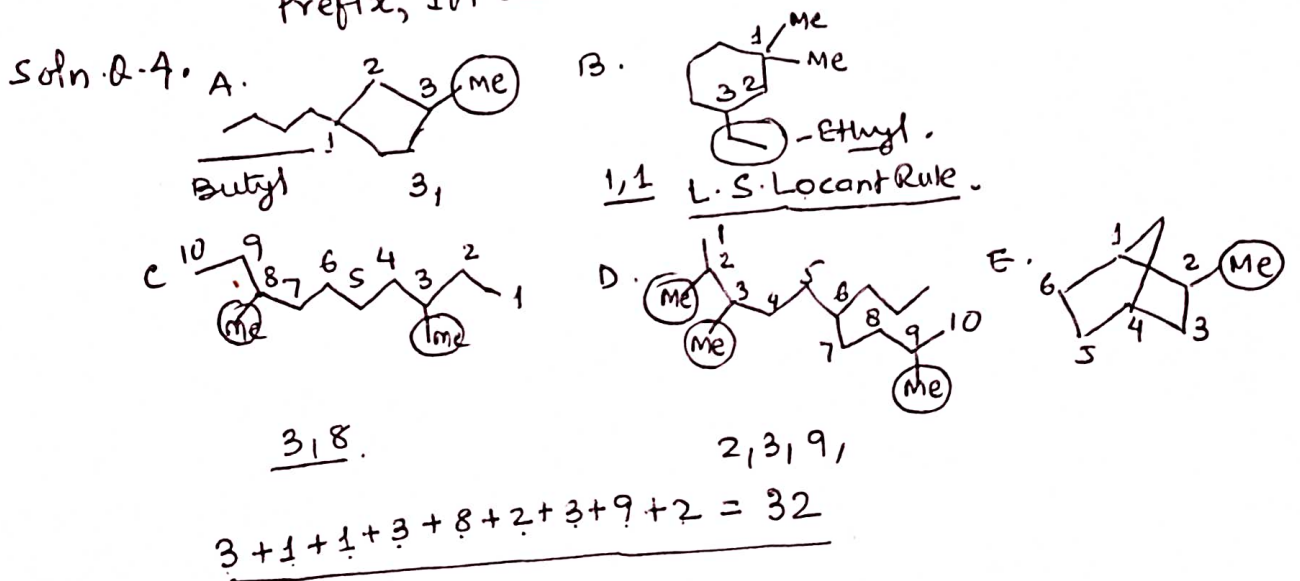 Prefix,
Soln. Q-4. A. 2 3 Me 1
Butyl 3,
B. 1 Me Me 3 2 - Ethyl.
1,1 L.S. Locant Rule.
C 10 9 8 7 6 5 4 3 2 1 Me Me
3,8.
D. 1 2 3 4 5 6 7 8 9 10 Me Me Me
2,3,9,
E. 1 2 Me 3 4 5 6
3+1+1+3+8+2+3+9+2 = 32